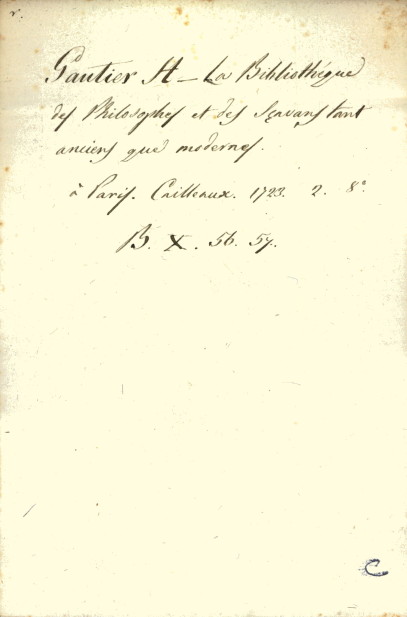 r.
Gautier H – La Bibliothégue
des Philosophes et des Sçavans tant
anciens que modernes.
à Paris. Cailleaux. 1723. 2. 8°
B. X. 56. 57.
C